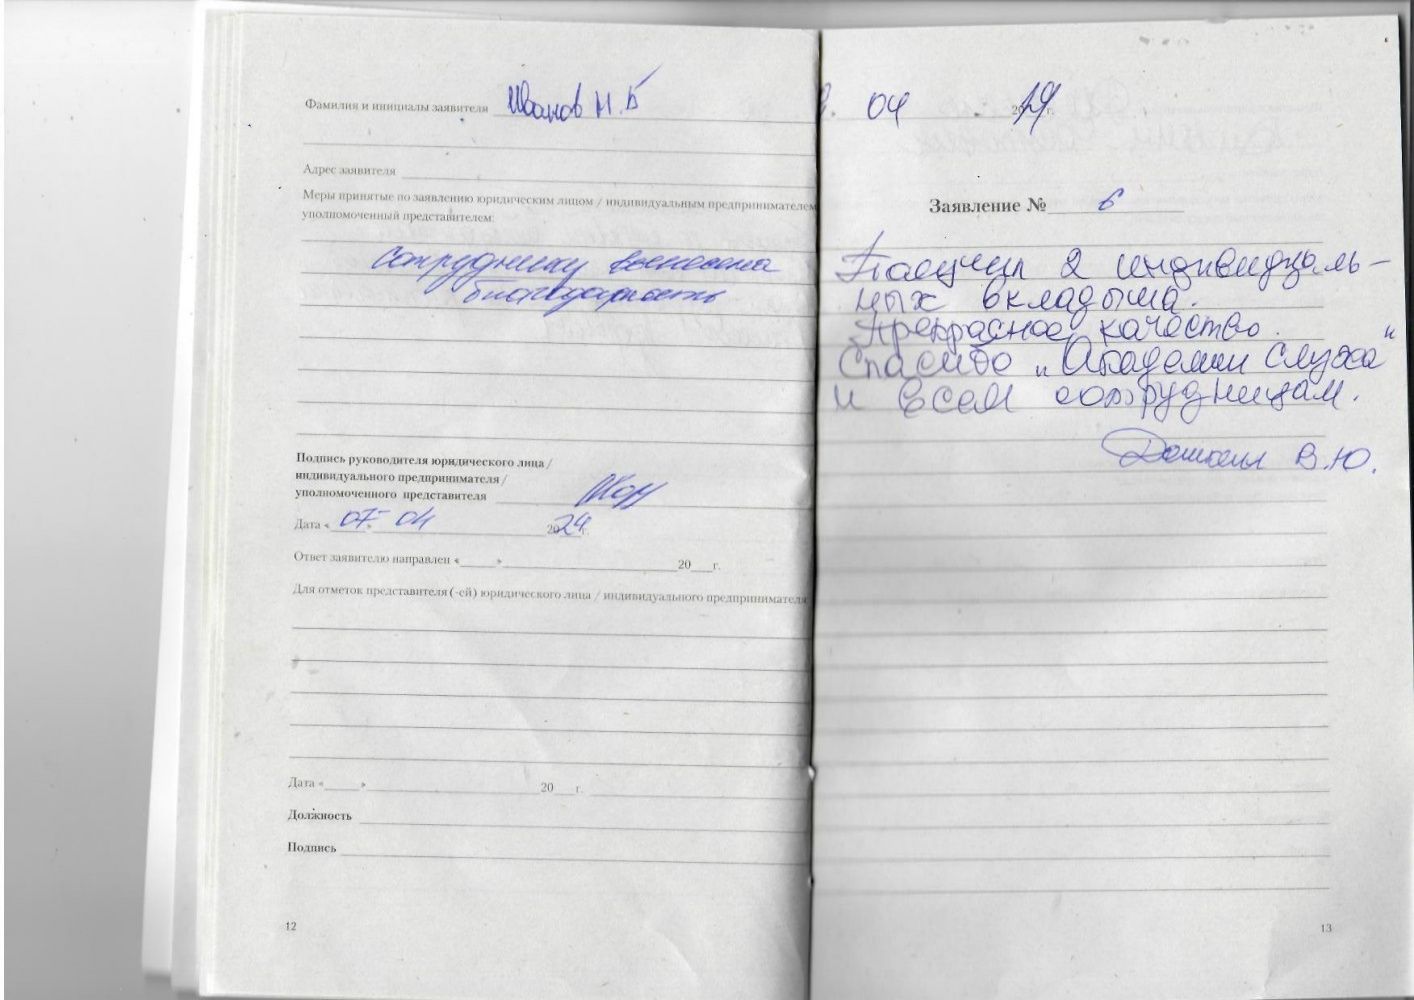 Фамилия и инициалы заявителя Иванов Н.Б
Адрес заявителя
Меры принятые по заявлению юридическим лицом / индивидуальным предпринимателем
уполномоченный представителем:
Сотруднику вынесена
благодарность
Подпись руководителя юридического лица /
индивидуального предпринимателя /
уполномоченного представителя
Дата « 07 » 04 2024г.
Ответ заявителю направлен «____» ____ 20___г.
Для отметок представителя (-ей) юридического лица / индивидуального предпринимателя
Дата «____» ____ 20___г.
Должность
Подпись
12
04 г.
Заявление № 6
Получил 2 индивидуаль-
ных вкладыша.
Прекрасное качество.
Спасибо „Академии Слуха"
и всем сотрудницам.
В.Ю.
13